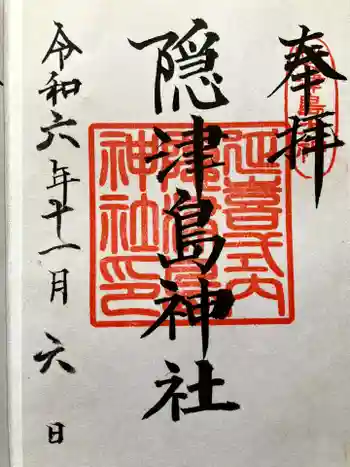 奉拝
隠津島神社
令和六年十一月六日
延喜式内
隠津島
神社印